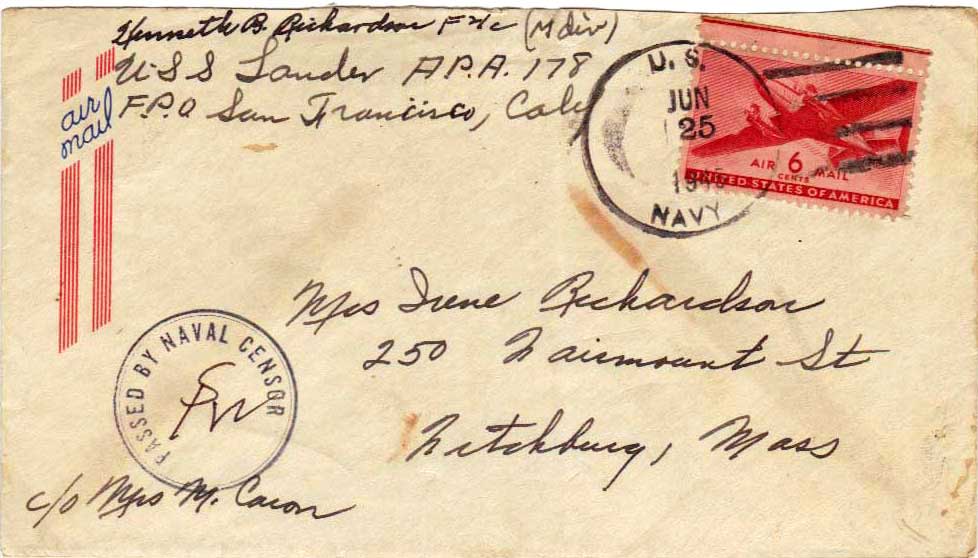 Kenneth B. Richardson F 2/c (M div)
USS Lander A.P.A. 178
F.P.O San Francisco, Cale
air
mail
U.S.
JUN
25
1945
NAVY
AIR 6 MAIL
CENTS
UNITED STATES OF AMERICA
Mrs Irene Richardson
250 Fairmount St
Fitchburg, Mass
PASSED BY NAVAL CENSOR
c/o Mrs M. Caron